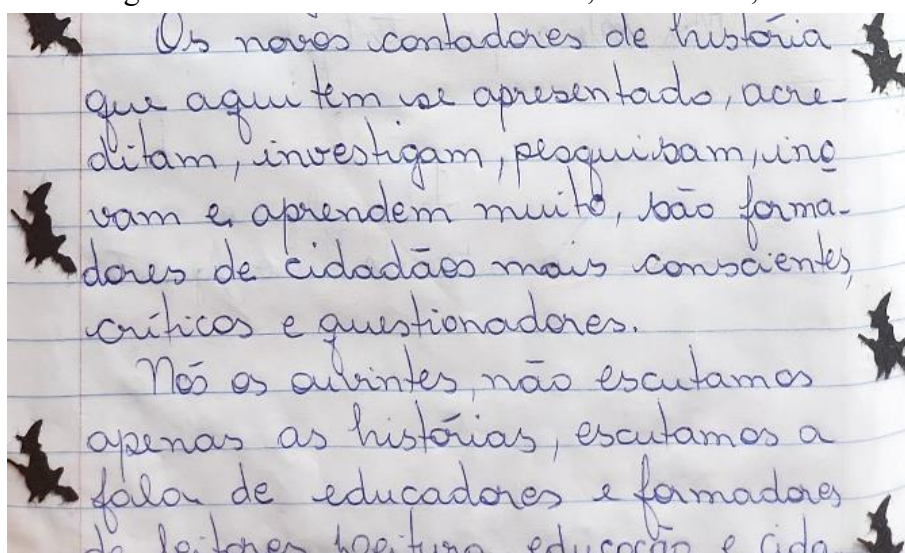 Os novos contadores de história
que aqui tem se apresentado, acre-
ditam, investigam, pesquisam, ino
vam e aprendem muito, são forma-
dores de cidadãos mais conscientes,
críticos e questionadores.
Nós os ouvintes, não escutamos
apenas as histórias, escutamos a
fala de educadores e formadores
de leitores educação e cida